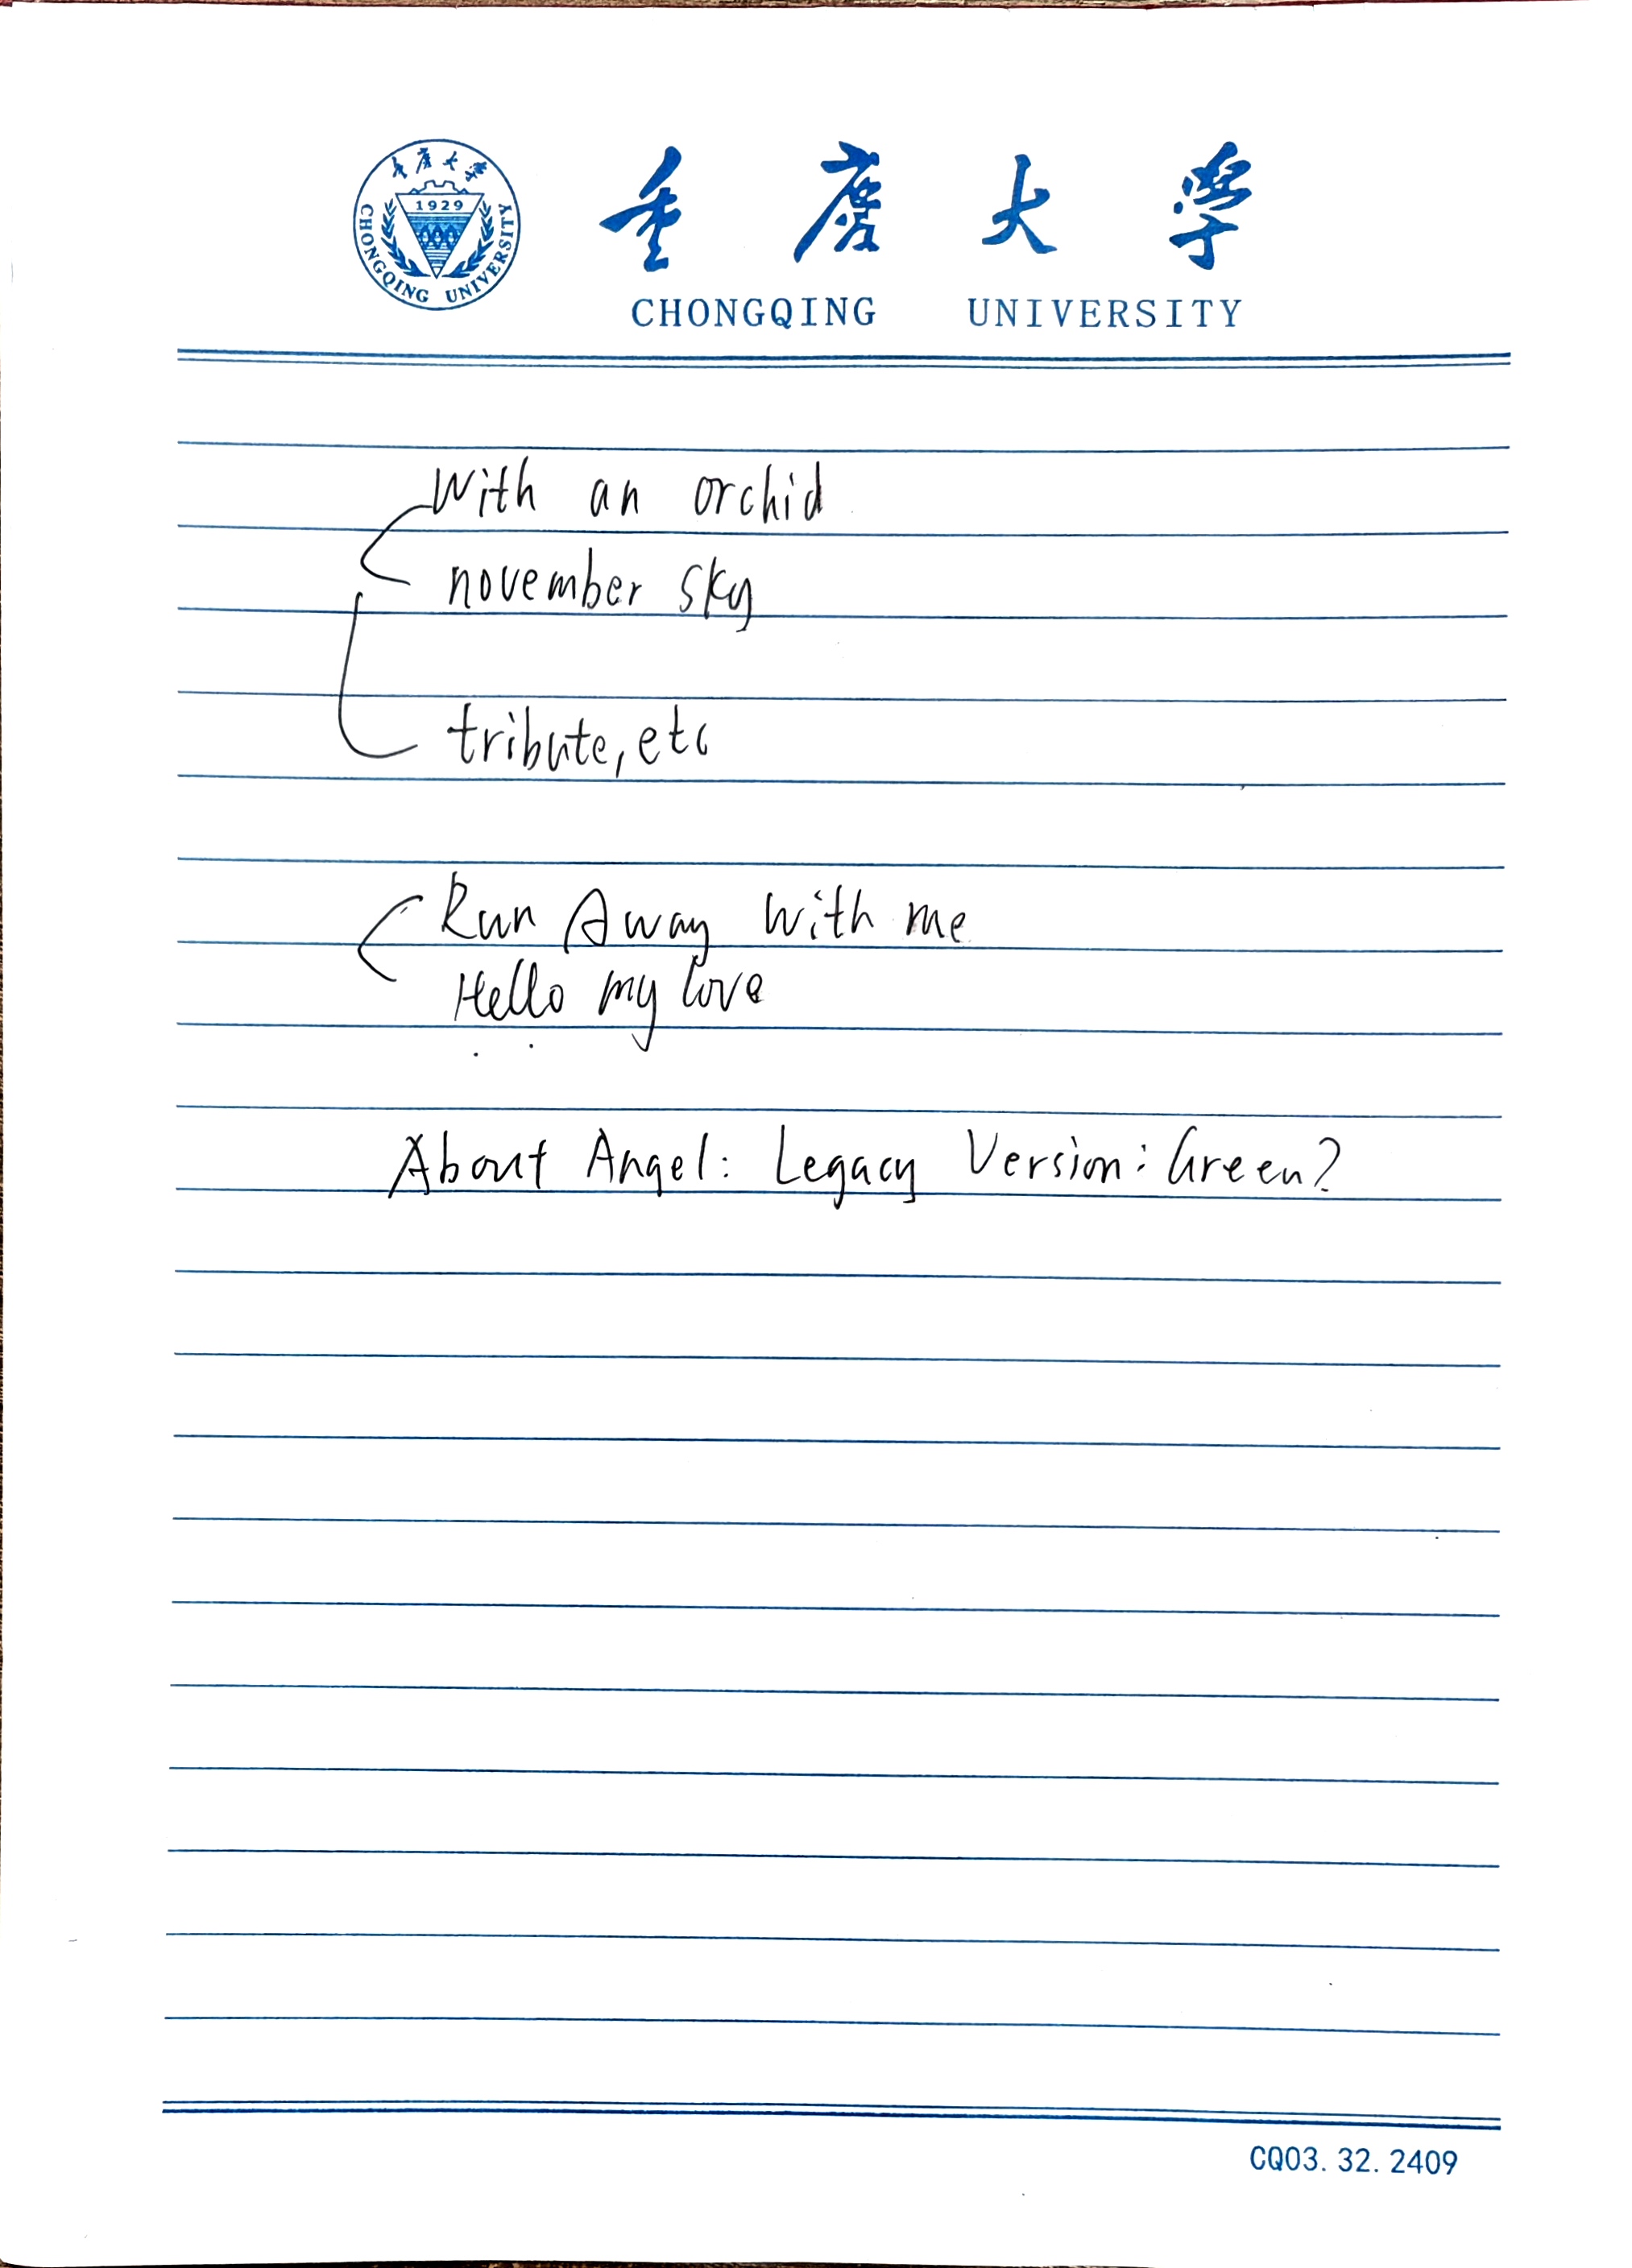 重庆大学
1929
CHONGQING UNIVERSITY
重庆大学
CHONGQING UNIVERSITY
With an orchid
november sky
tribute, etc
Run Away with me
Hello my love
About Angel: Legacy Version: Green?
CQ03.32.2409